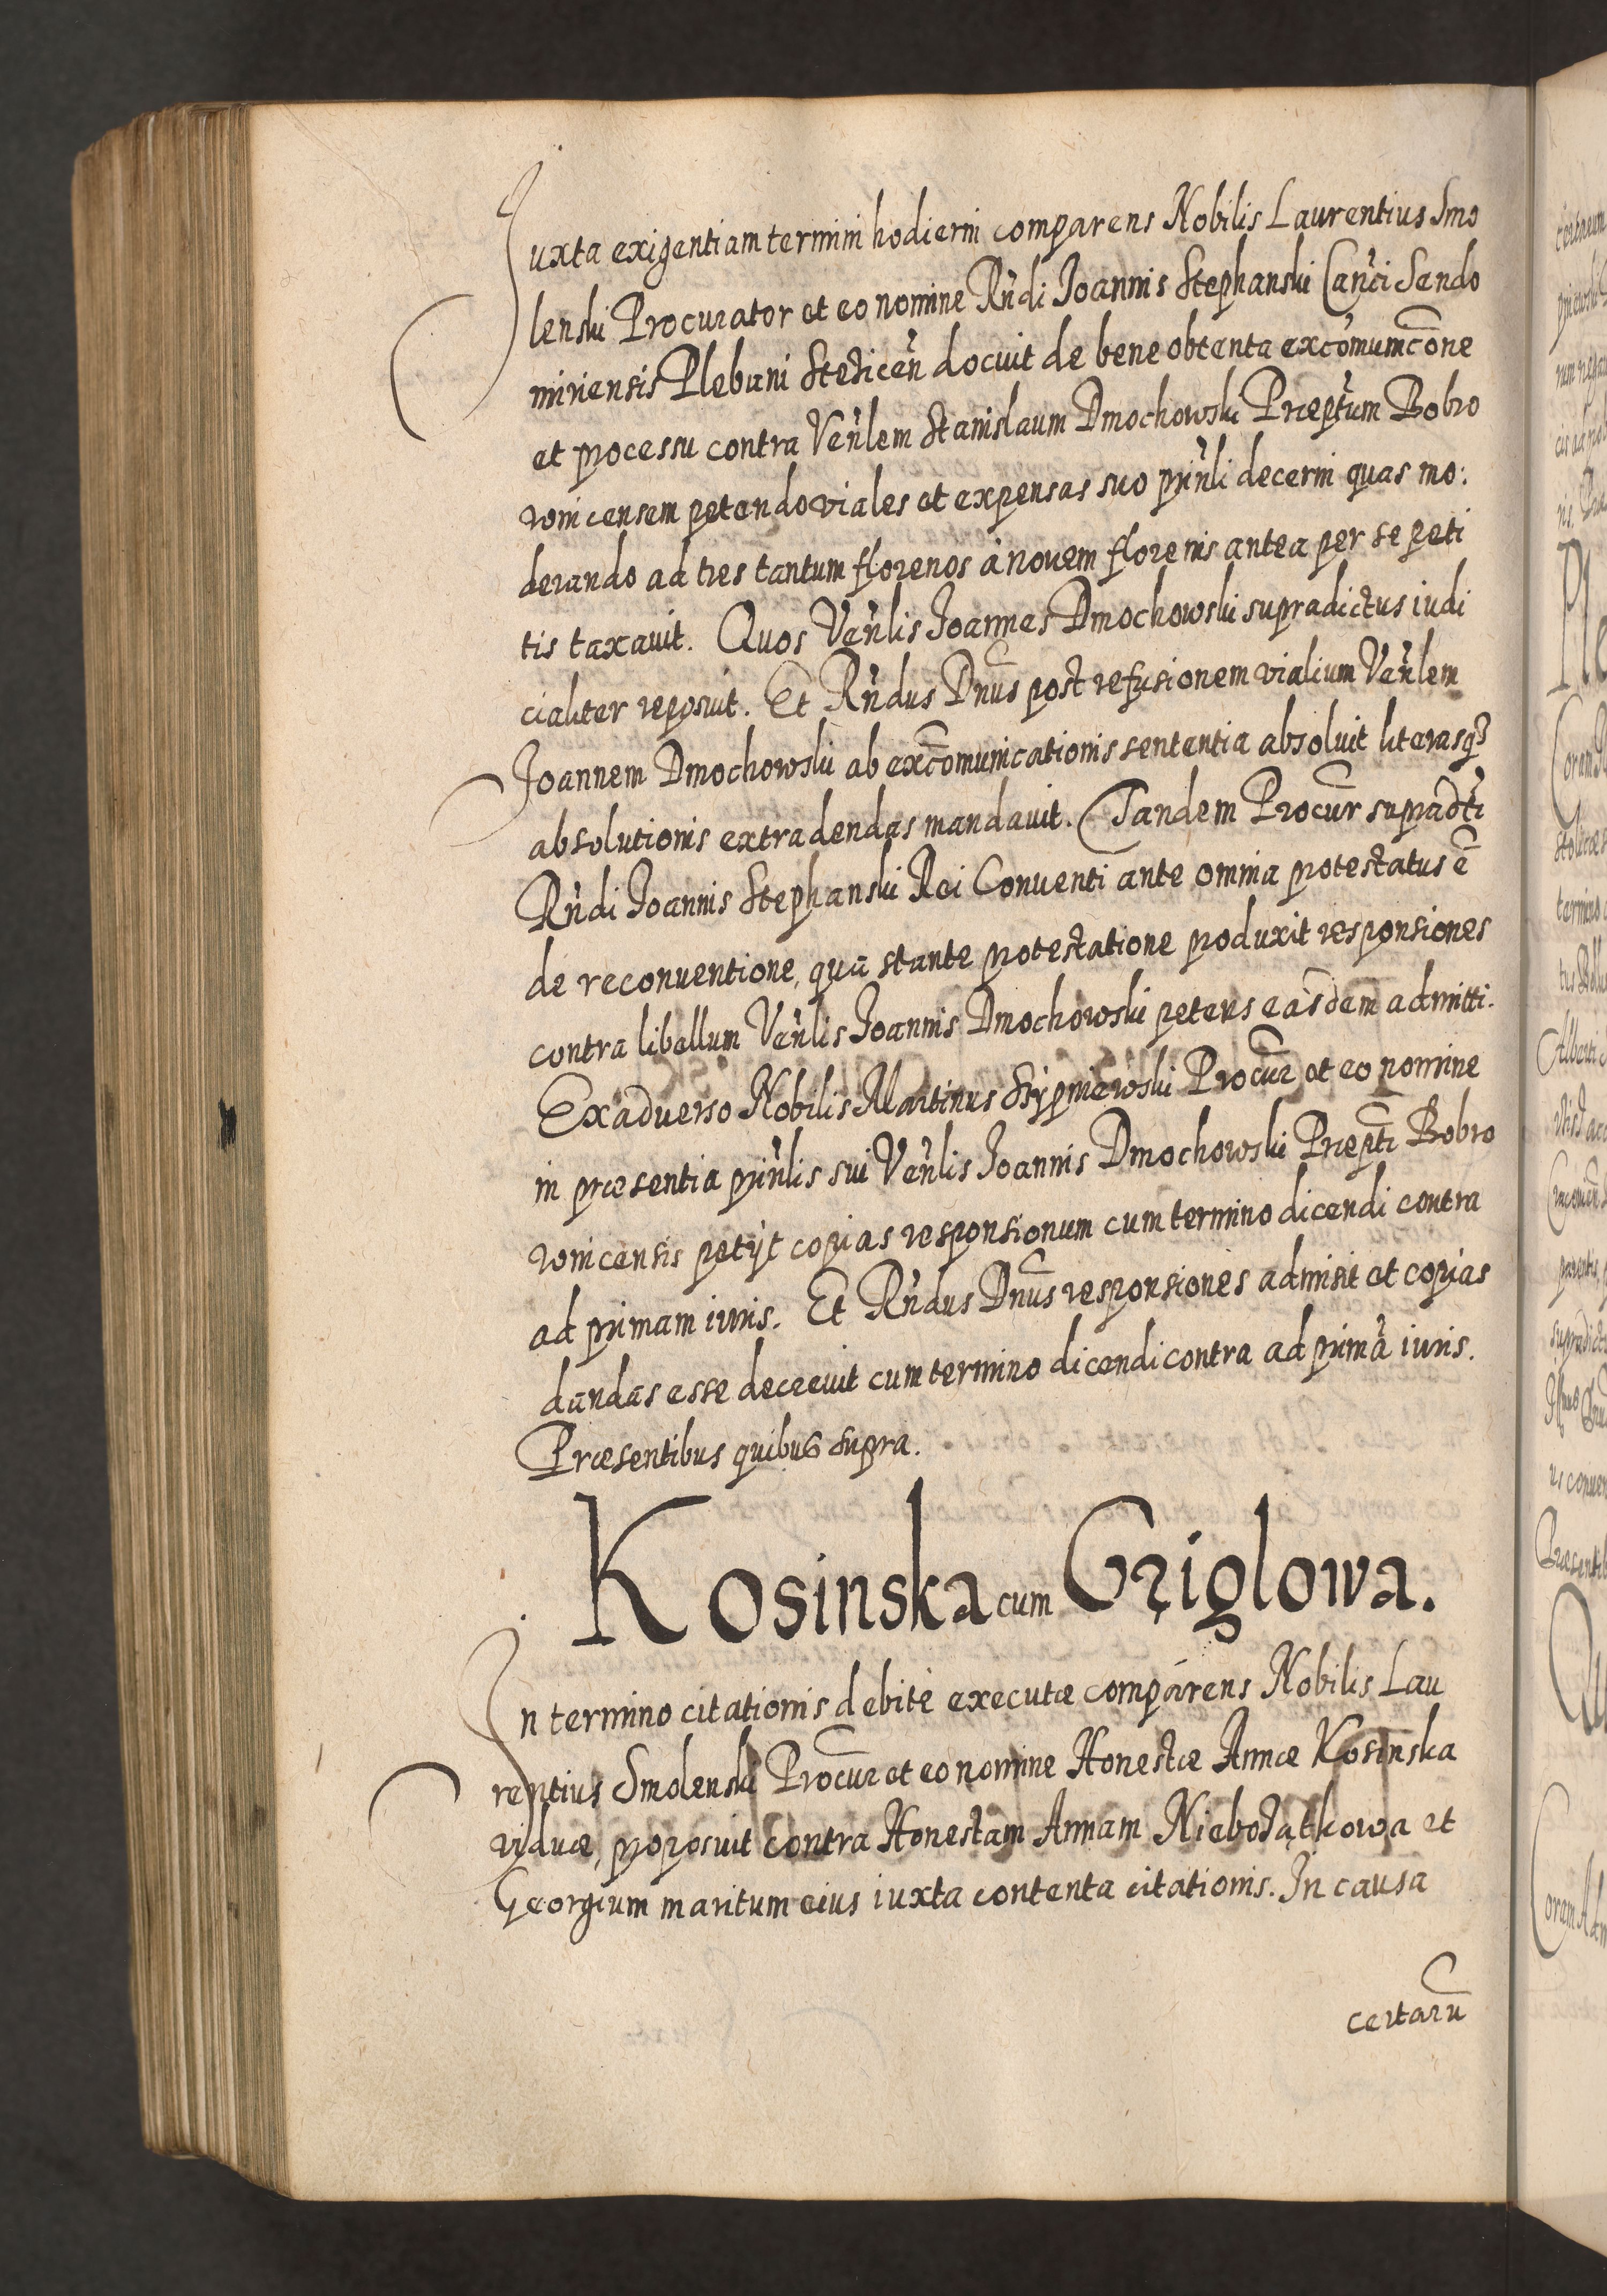 Iuxta exigentiam termini hodierni comparens Nobilis Laurentius Smo
lenski Procurator et eo nomine Rńdi Joannis Stephanski Cańci Sendo
miriensis Plebani Steżiceń docuit de bene obtenta excōmumcōne
et processu contra Veńlem Stanislaum Dmochowski Præptum Bobro
wnicensem petendo viales et expensas suo prinli decerni quas mo:
derando ad tres tantum florenos à novem florenis antea per se peti
tis taxavit. Quos Veńlis Joannes Dmochowski supradictus iudi
cialiter reposuit. Et Rńdus Dnūs post refusionem vialium Veńlem
Joannem Dmochowski ab excōmunicationis sententia absoluit literasq3
absolutionis extradendas mandavit. Tandem Procūr supradti
Rńdi Joannis Stephanski Rei Conventi ante omnia protestatus ē
de reconventione, qua stante protestatione produxit responsiones
contra libellum Veńlis Joannis Dmochowski petens eásdem admitti.
Ex adverso Nobilis Martinus Skypniewski Procūr et eo nomine
in præsentia prińlis sui Veńlis Joannis Dmochowski Præpti Bobro
wnicensis petijt copias responsionum cum termino dicendi contra
ad primam iuris. Et Rńdus Dnūs responsiones admisit et copias
dandas esse decrevit cum termino dicendi contra ad primā iuris.
Præsentibus quibus supra.
Kosinska cum Grziglowa.
In termino citationis debitè executæ comparens Nobilis Lau
rentius Smolenski Procūr et eo nomine Honestæ Annæ Kosinska
viduæ, proposuit contra Honestam Annam Niebożątkowa et
Georgium maritum eius iuxta contenta citationis. In causa
certarū